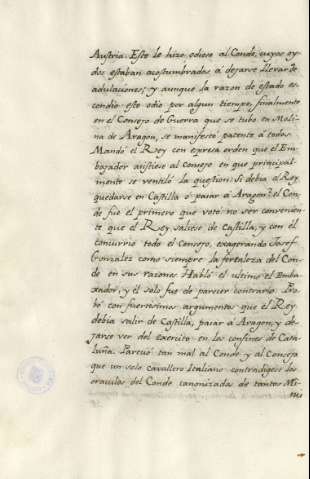 Austria. Esto le hizo odioso al Conde, cuyos oy-
dos estaban acostumbrados á dejarse llevar de
adulaciones; y aunque la razon de estado es-
condió este odio por algun tiempo, finalmente
en el Consejo de Guerra que se tubo en Moli-
na de Aragon, se manifestó patente á todos.
Mandó el Rey con expresa orden que el Em-
bajador asistiese al Consejo en que principal-
mente se ventiló la question: si debia el Rey
quedarse en Castilla ó pasar á Aragon? el Con-
de fué el primero que votó no ser convenien-
te que el Rey saliese de Castilla, y con él
concurrió todo el Consejo, exagerando Josef
Gonzalez como siempre la fortaleza del Con-
de en sus razones. Habló el ultimo el Emba-
xador, y él solo fue de parecer contrario. Pro-
bó con fuertisimos argumentos que el Rey
debia salir de Castilla, pasar á Aragon, y de-
jarse ver del exercito en los confines de Cata-
luña. Pareció tan mal al Conde y al Consejo
que un solo cavallero Italiano contradigese los
oraculos del Conde canonizados de tantos Mi-
nis